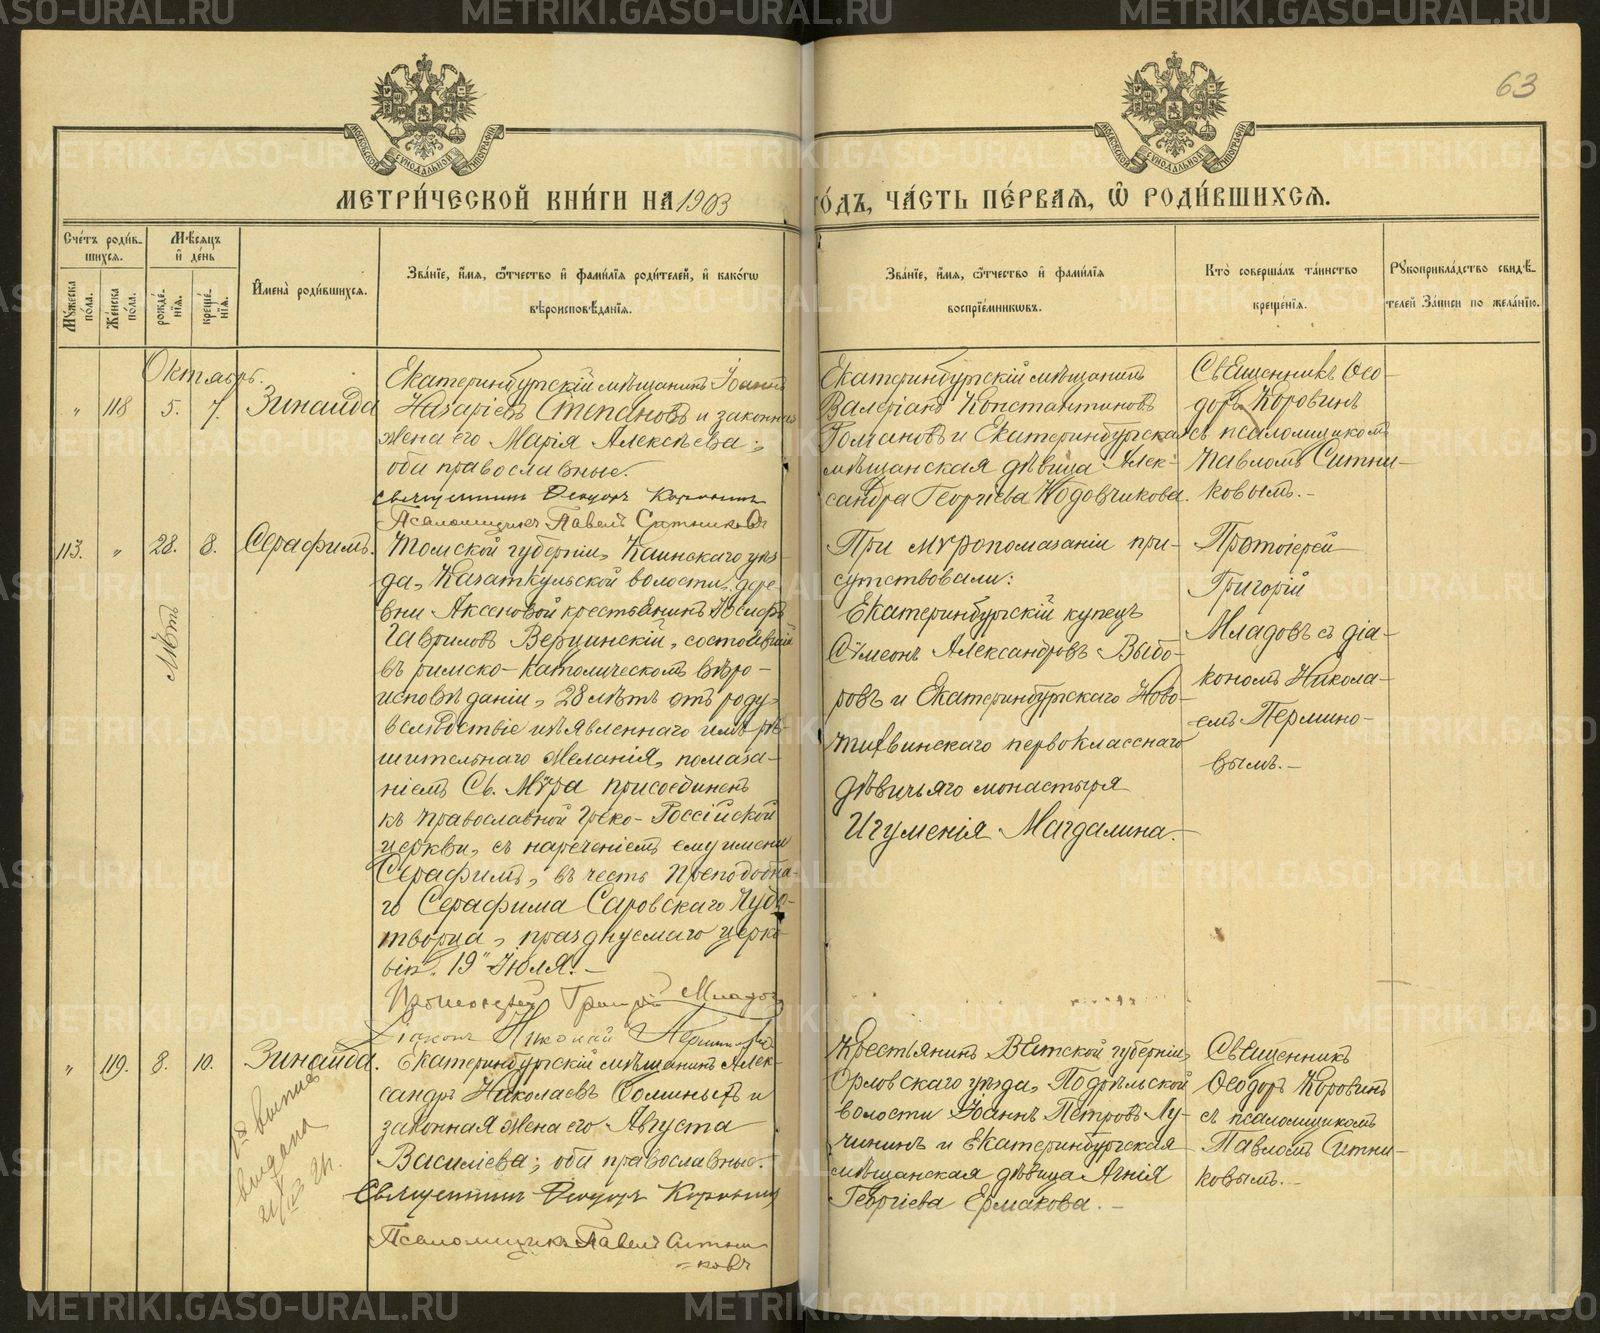 63
МЕТРИ́ЧЕСКОЙ КНИ́ГИ НА 1903 ГО́ДЪ, ЧА́СТЬ ПЕ́РВАЯ, Ѡ҆ РОДИ́ВШИХСЯ.
Сче́тъ роди́в-
шихся.
Мѣ́сяцъ
и҆ де́нь
Му́жеска по́ла.
Же́нска по́ла.
рожде́-
нїя.
креще́-
нїя.
И҆мена̀ роди́вшихся.
Зва́нїе, и҆́мя, ѻ҆́тчество и҆ фами́лїя роди́телей, и҆ како́гѡ
вѣроисповѣ́данїя.
Зва́нїе, и҆́мя, ѻ҆́тчество и҆ фами́лїя
воспрїе́мникѡвъ.
Кто̀ соверша́лъ та́инство
креще́нїя.
Рꙋкоприкла́дство свидѣ́-
телей за́писи по жела́нїю.
Октябрь.
" 118 5. 7. Зинаида
Екатеринбургскій мѣщанинъ Іоаннъ
Назаріевъ Степановъ и законная
жена его Марія Алексѣева;
оба православные.
Священникъ Ѳеодоръ Коровинъ
Псаломщикъ Павелъ Ситниковъ
Екатеринбургскій мѣщанинъ
Валеріанъ Константиновъ
Толчановъ и Екатеринбургская
мѣщанская дѣвица Алек-
сандра Георгіева Кодовчикова.
Священникъ Ѳео-
доръ Коровинъ
съ псаломщикомъ
Павломъ Ситни-
ковымъ.-
113. " 28. 8. Серафимъ.
лѣтъ
Томской губерніи, Каинскаго уѣз-
да, Казаткульской волости, дере-
вни Аксеновой крестьянинъ Іосифъ
Гавриловъ Верцинскій, состоявшій
въ римско-католическомъ вѣро-
исповѣданіи, 28 лѣтъ отъ роду,
вслѣдствіе изъявленнаго имъ рѣ-
шительнаго желанія, помаза-
ніемъ Св. Мѵра присоединенъ
къ православной Греко-Россійской
церкви, съ нареченіемъ ему имени
Серафимъ, въ честь Преподобна-
го Серафима Саровскаго Чудо-
творца, празднуемаго церко-
вію "19" Іюля.-
Протоіерей Григорій Младовъ
Діаконъ Николай Перминовъ
При мѵропомазаніи при-
сутствовали:
Екатеринбургскій купецъ
Сѵмеонъ Александровъ Выбо-
ровъ и Екатеринбургскаго Ново-
тихвинскаго первокласснаго
дѣвичьяго монастыря
Игуменія Магдалина.-
Протоіерей
Григорій
Младовъ съ діа-
кономъ Никола-
емъ Пермино-
вымъ.-
" 119. 8. 10. Зинаида.
1я выпись
выдана
Екатеринбургскій мѣщанинъ Алек-
сандръ Николаевъ Соминъ и
законная жена его Августа
Василіева; оба православные.
Священникъ Ѳеодоръ Коровинъ
Псаломщикъ Павелъ Ситни-
ковъ
Крестьянинъ Вятской губерніи,
Орловскаго уѣзда, Подрѣльской
волости Іоаннъ Петровъ Лу-
чининъ и Екатеринбургская
мѣщанская дѣвица Агнія
Георгіева Ермакова.-
Священникъ
Ѳеодоръ Коровинъ
съ псаломщикомъ
Павломъ Ситни-
ковымъ.-
METRIKI.GASO-URAL.RU